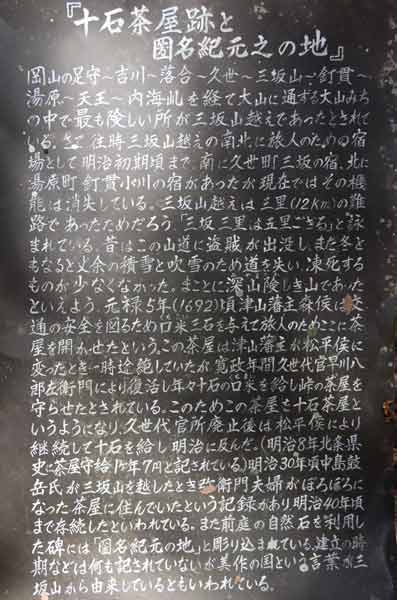 『十石茶屋跡と
国名紀元之の地』
岡山の足守～吉川～落合～久世～三坂山～釘貫～
湯原～天王～内海乢を経て大山に通ずる大山みち
の中で最も険しい所が三坂山越えであったとされて
いる。さて往時三坂山越えの南北に旅人のための宿
場として明治初期頃まで、南に久世町三坂の宿、北に
湯原町釘貫小川の宿があったが現在ではその機
能は消失している。三坂山越えは三里(12Km)の難
路であったためだろう「三坂三里は五里ござる」と詠
まれている。昔はこの山道に盗賊が出没し、また冬と
もなると丈余の積雪と吹雪のため道を失い、凍死する
ものが少なくなかった。まことに深山険しき山であった
といえよう。元禄5年(1692)頃津山藩主森侯は交
通の安全を図るため口米三石を与えて旅人のためここに茶
屋を開かせたという。この茶屋は津山藩主が松平侯に
変ったとき一時途絶していたが寛政年間久世代官早川八
郎左衛門により復活し年々十石の口米を給し峠の茶屋を
守らせたとされている。このためこの茶屋を十石茶屋と
いうようになり、久世代官所廃止後は松平侯により
継続して十石を給し明治に及んだ。(明治8年北条県
史に茶屋守給1ヶ年7円と記されている。)明治30年頃中島鼓
岳氏が三坂山を越したとき弥衛門夫婦がぼろぼろに
なった茶屋に住んでいたという記録があり明治40年頃
まで存続したといわれている。また前庭の自然石を利用し
た碑には「国名紀元の地」と彫り込まれている。建立の時
期などは何も記されていないが美作の国という言葉が三
坂山から由来しているともいわれている。